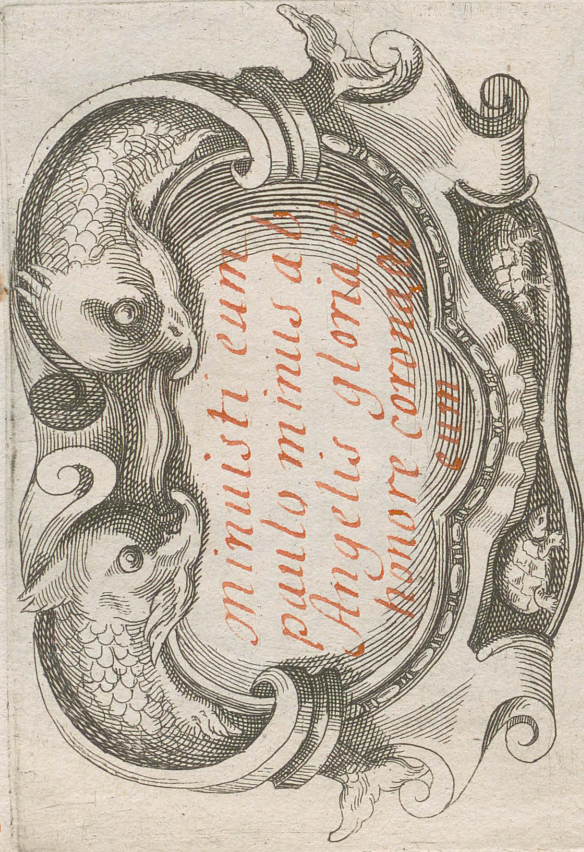 minuisti eum
paulo minus ab
Angelis gloria et
honore coronasti
eum